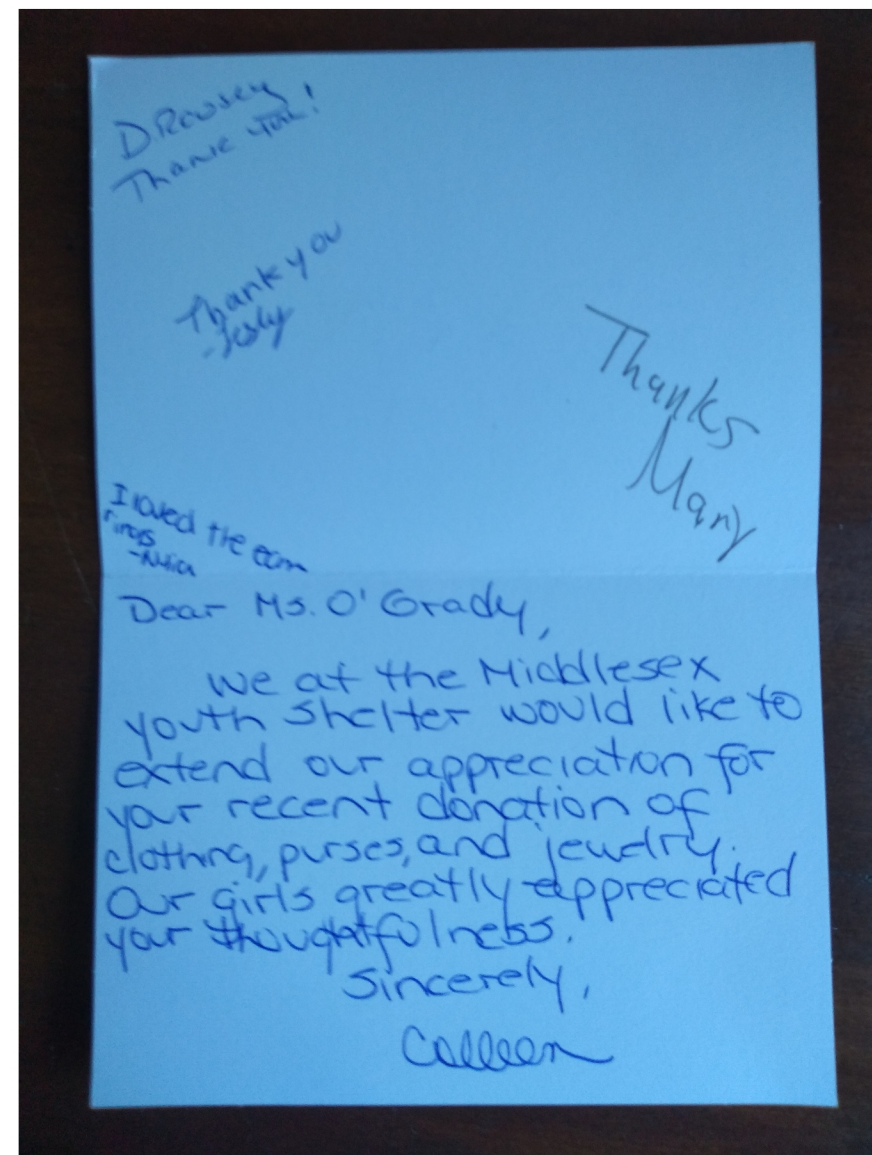 Thank you!
Thank you
Thanks
Mary
I loved the ear
rings
Dear Ms. O'Grady,
We at the Middlesex
youth shelter would like to
extend our appreciation for
your recent donation of
clothing, purses, and jewelry.
Our girls greatly appreciated
your thoughtfulness.
Sincerely,
Colleen